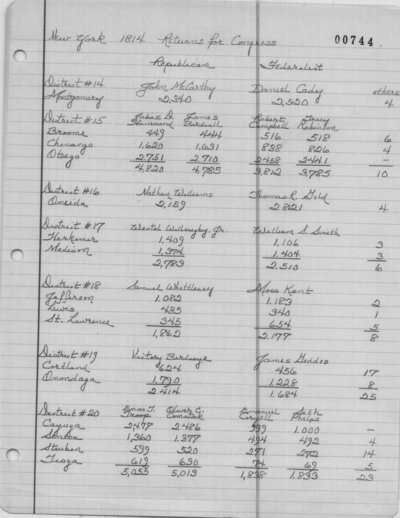 New York 1814 Returns for Congress 00744
Republican Federalist
District #14 John McCarthy Daniel Cady others
Montgomery 2,340 2,520 4
District #15 Jabez D. James Robert Tracy
Hammond Birdsall Campbell Robinson
Broome 449 444 516 518 6
Chinango 1,620 1,631 838 826 4
Otsego 2,751 2,710 2458 2441 —
4,820 4,785 3,812 3,785 10
District #16 Nathan Williams Thomas R. Gold
Oneida 2,159 2,821 4
District #17 Westel Willoughby, Jr. William S. Smith
Herkemer 1,409 1,106 3
Madison 1,374 1,404 3
2,783 2,510 6
District #18 Samuel Whittlesey Moss Kent
Jefferson 1,082 1,183 2
Lewes 435 340 1
St. Lawrence 345 654 5
1,862 2,177 8
District #19 Victory Birdseye James Geddes
Cortland 624 456 17
Onondaga 1,790 1,228 8
2,414 1,684 25
District #20 Enos T. Oliver C. Emanuel Seth
Throop Comstock Coryell Phelps
Cayuga 2,477 2,486 999 1,000 —
Seneca 1,360 1,377 494 492 4
Steuben 599 520 271 272 14
Tioga 619 630 74 69 5
5,055 5,013 1,838 1,833 23